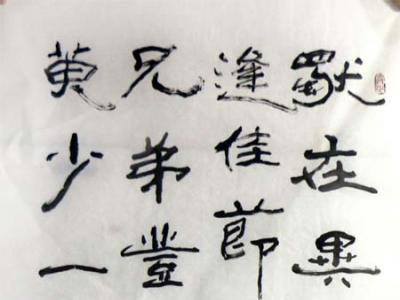 獨在異
逢佳節
兄弟豐
萸少一